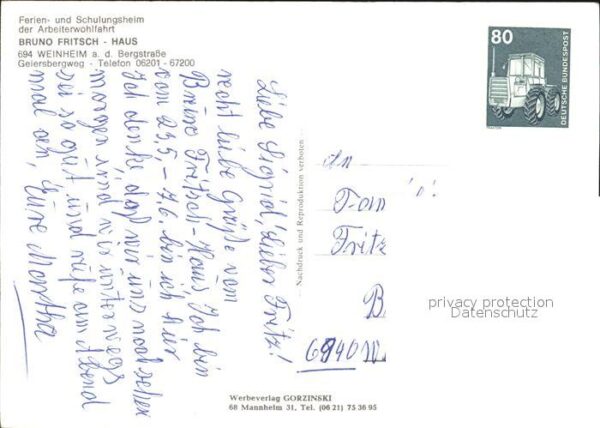 Ferien- und Schulungsheim
der Arbeiterwohlfahrt
BRUNO FRITSCH - HAUS
694 WEINHEIM a. d. Bergstraße
Geiersbergweg - Telefon 06201 - 67200
Liebe Sigrid, lieber Fritz!
recht liebe Grüße vom
Bruno Fritsch-Haus. Ich bin
vom 23.5. - 7.6. bin ich hier
Ich denke, daß wir uns mal sehen
morgen sind wir unterwegs
sei so gut und rufe am Abend
mal an, Eure Martha
Nachdruck und Reproduktion verboten
80
DEUTSCHE BUNDESPOST
TRAKTOR
An
Fam
Fritz
B
6940 W
privacy protection
Datenschutz
Werbeverlag GORZINSKI
68 Mannheim 31, Tel. (06 21) 75 36 95